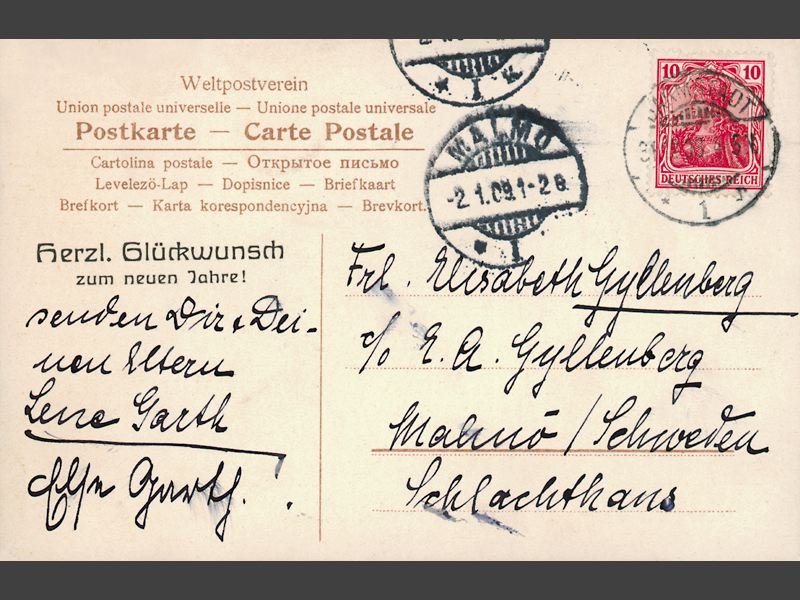 Weltpostverein
Union postale universelle — Unione postale universale
Postkarte — Carte Postale
Cartolina postale — Открытое письмо
Levelező-Lap — Dopisnice — Briefkaart
Brefkort — Karta korespondencyjna — Brevkort.
Herzl. Glückwunsch
zum neuen Jahre!
senden Dir & Dei-
nen Eltern
Lene Garth
Else Garth.
MALMÖ
-2.1.09.1-2 e.
1
1
10 10
DEUTSCHES REICH
1
Frl. Elisabeth Gyllenberg
c/o E. A. Gyllenberg
Malmö / Schweden
Schlachthaus